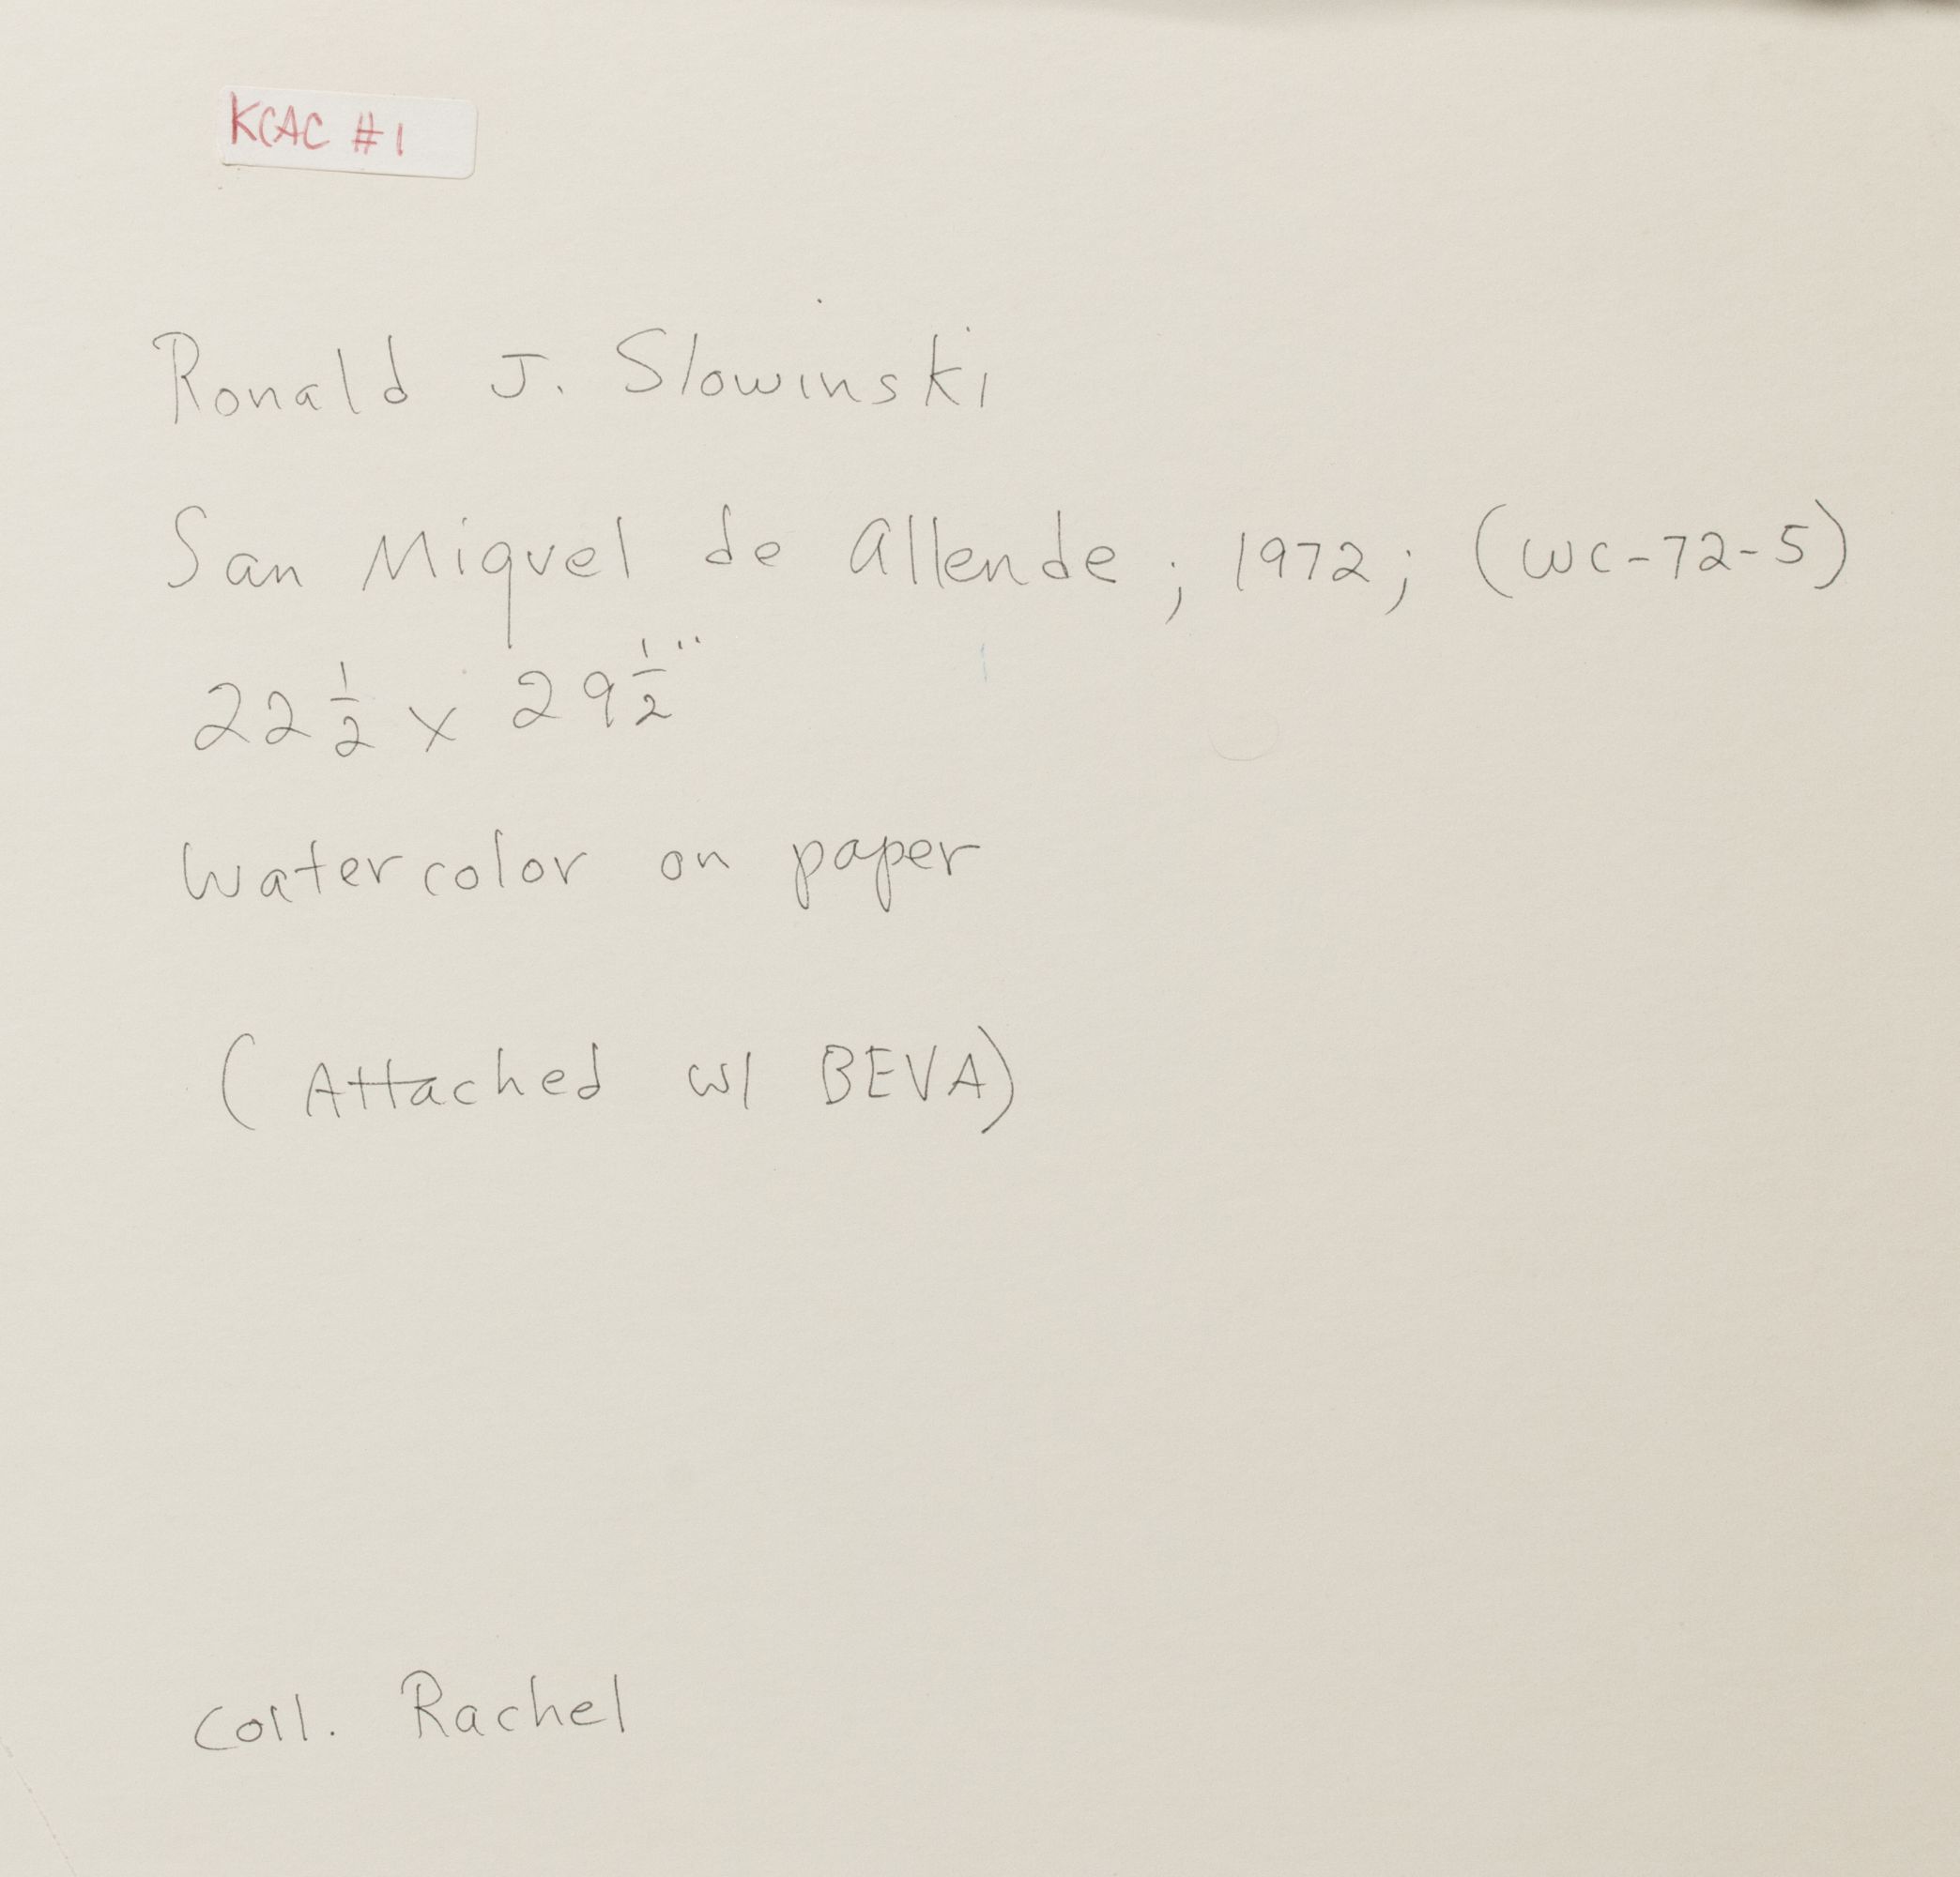 KCAC #1
Ronald J. Slowinski
San Miguel de Allende; 1972; (WC-72-5)
22 1/2 x 29 1/2"
Watercolor on paper
(Attached w/ BEVA)
Coll. Rachel